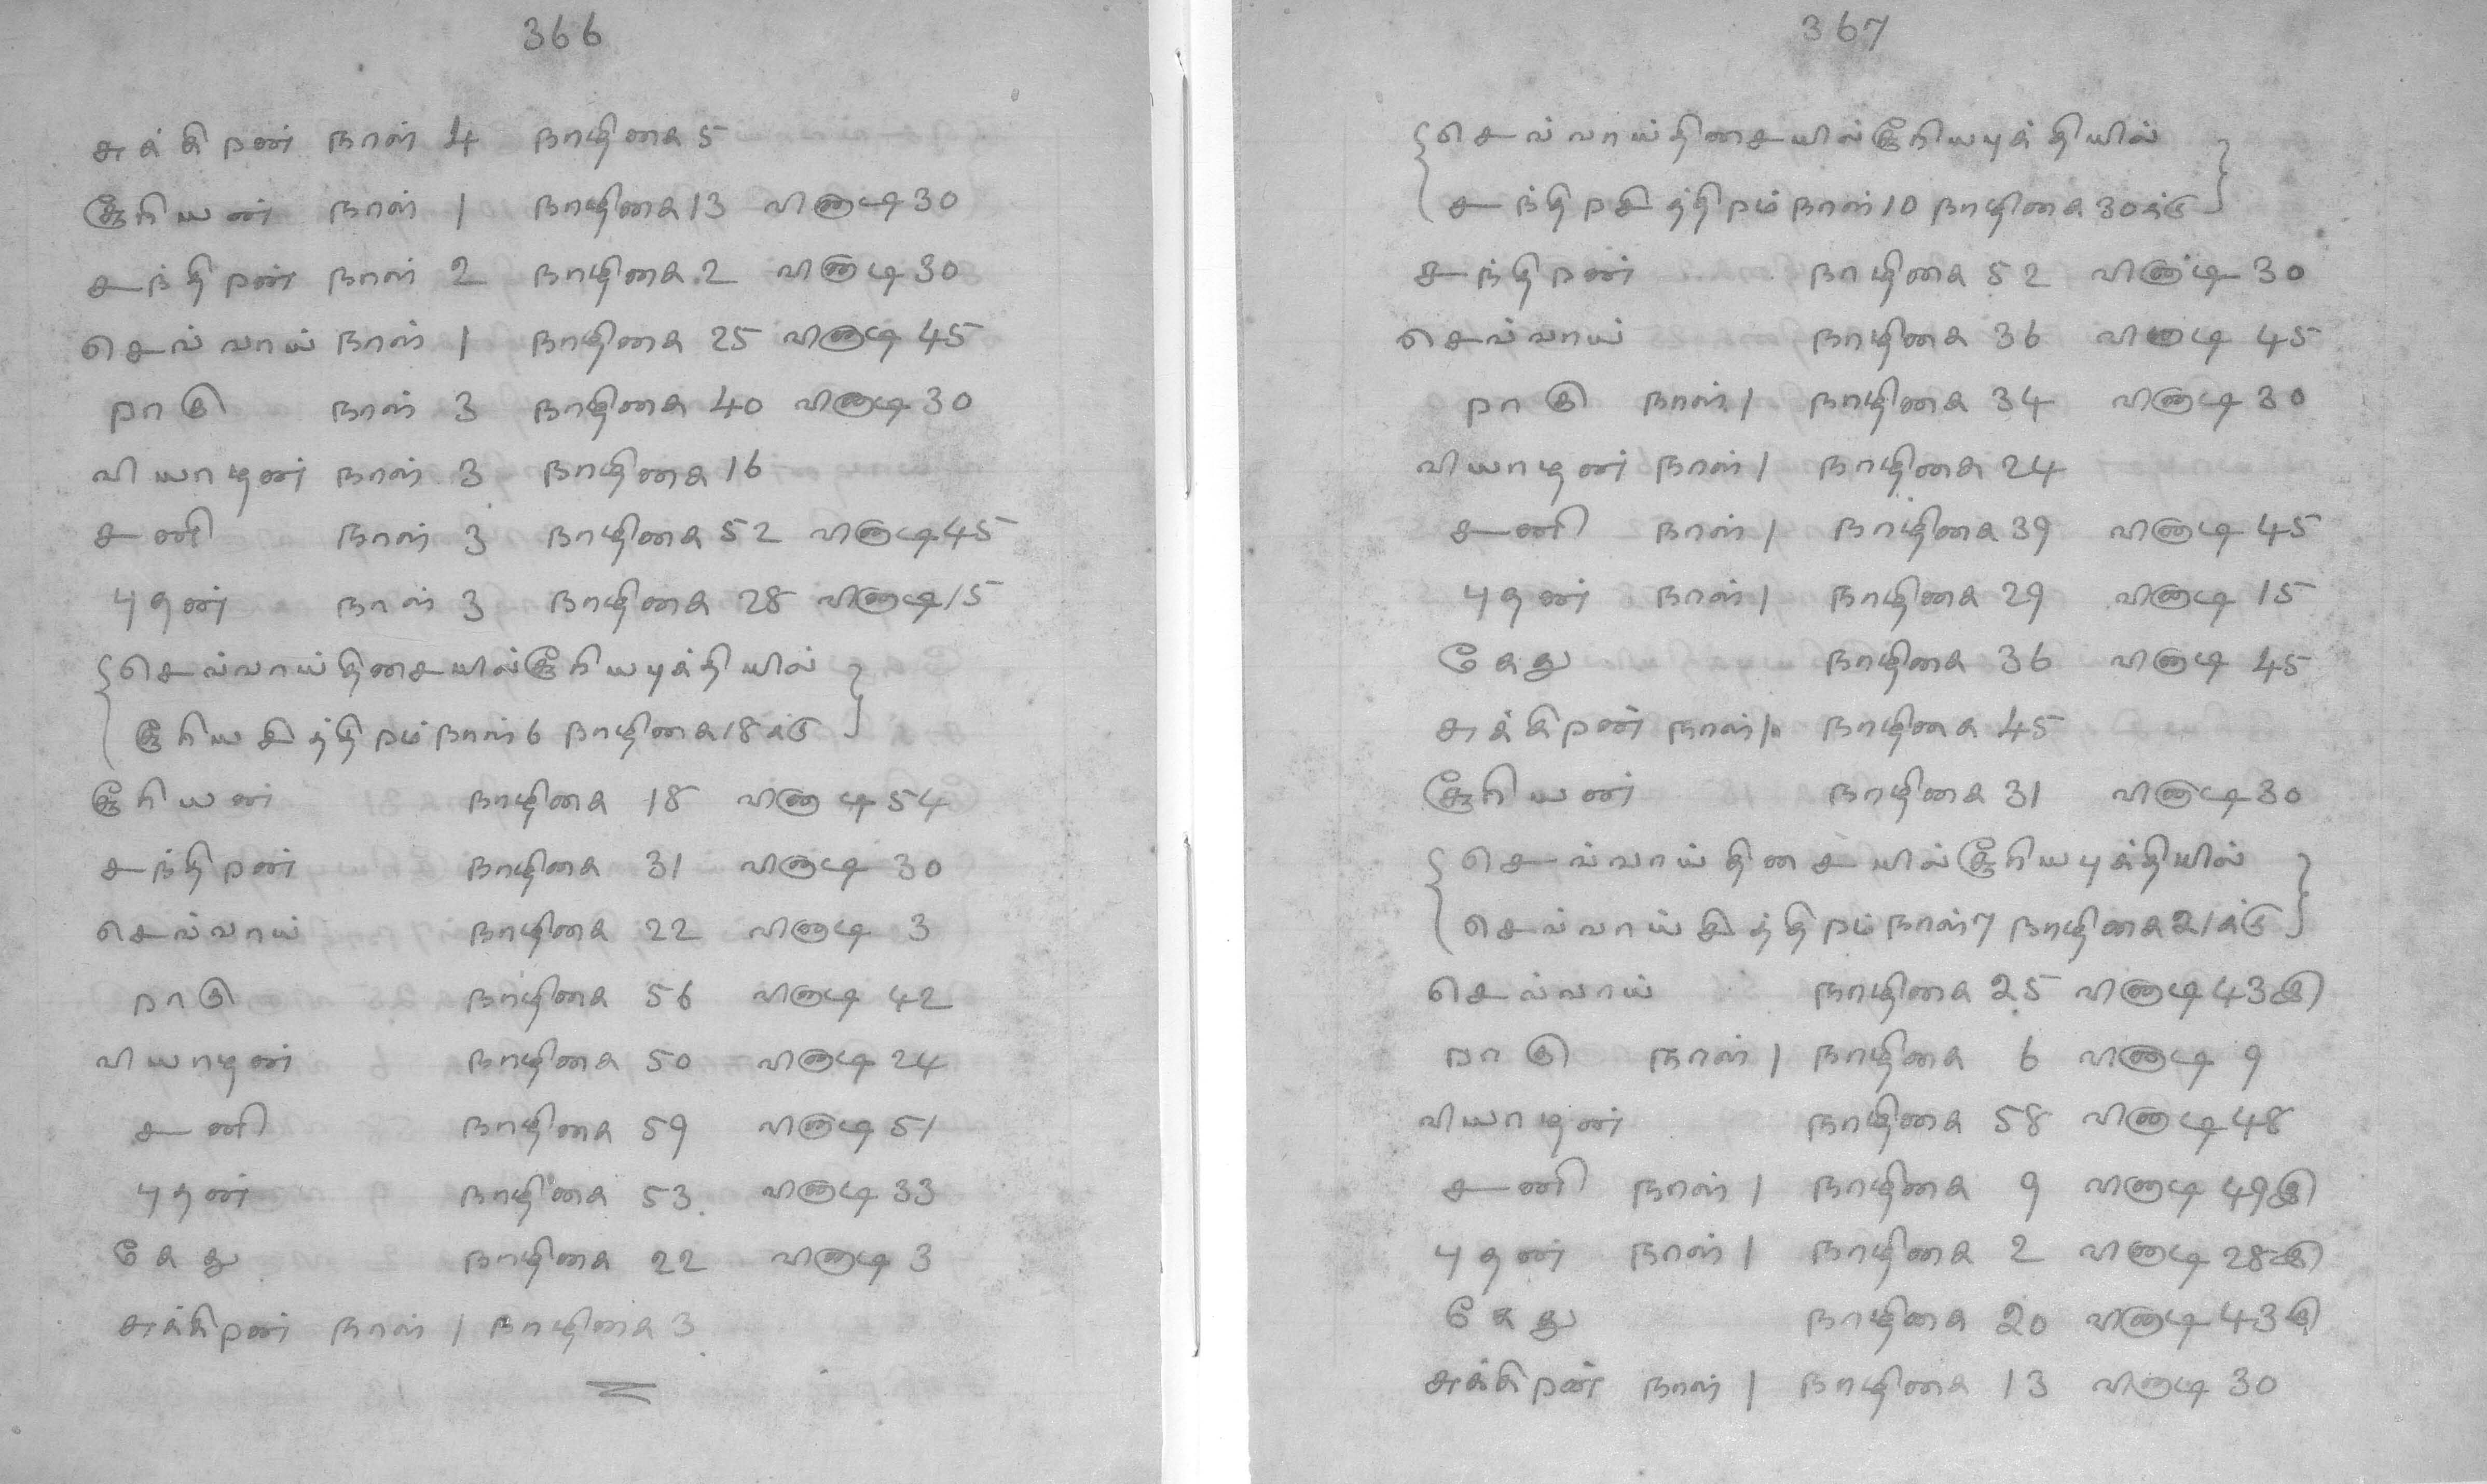 366
சுக்கிறன் நாள் 4 நாழிகை 5
சூரியன் நாள் 1 நாழிகை 13 வினாடி 30
சந்திறன் நாள் 2 நாழிகை 2 வினாடி 30
செவ்வாய் நாள் 1 நாழிகை 25 வினாடி 45
றாகு நாள் 3 நாழிகை 40 வினாடி 30
வியாழன் நாள் 3 நாழிகை 16
சனி நாள் 3 நாழிகை 52 வினாடி 45
புதன் நாள் 3 நாழிகை 28 வினாடி 15
{செவ்வாய்திசையில்சூரியபுக்தியில்}
சூரியசித்திறம்நாள் 6 நாழிகை 18க்கு
சூரியன் நாழிகை 18 வினாடி 54
சந்திறன் நாழிகை 31 வினாடி 30
செவ்வாய் நாழிகை 22 வினாடி 3
றாகு நாழிகை 56 வினாடி 42
வியாழன் நாழிகை 50 வினாடி 24
சனி நாழிகை 59 வினாடி 51
புதன் நாழிகை 53 வினாடி 33
கேது நாழிகை 22 வினாடி 3
சுக்கிறன் நாள் 1 நாழிகை 3
367
{செவ்வாய்திசையில்சூரியபுக்தியில்
சந்திறசித்திறம்நாள் 10 நாழிகை 30க்கு}
சந்திறன் நாழிகை 52 வினாடி 30
செவ்வாய் நாழிகை 36 வினாடி 45
றாகு நாள் 1 நாழிகை 34 வினாடி 30
வியாழன் நாள் 1 நாழிகை 24
சனி நாள் 1 நாழிகை 39 வினாடி 45
புதன் நாள் 1 நாழிகை 29 வினாடி 15
கேது நாழிகை 36 வினாடி 45
சுக்கிறன் நாள் 1 நாழிகை 45
சூரியன் நாழிகை 31 வினாடி 30
{செவ்வாய்திசையில்சூரியபுக்தியில்
செவ்வாய்சித்திறம்நாள் 7 நாழிகை 21க்கு}
செவ்வாய் நாழிகை 25 வினாடி 43
றாகு நாள் 1 நாழிகை 6 வினாடி 9
வியாழன் நாழிகை 58 வினாடி 48
சனி நாள் 1 நாழிகை 9 வினாடி 49
புதன் நாள் 1 நாழிகை 2 வினாடி 28
கேது நாழிகை 20 வினாடி 43
சுக்கிறன் நாள் 1 நாழிகை 13 வினாடி 30